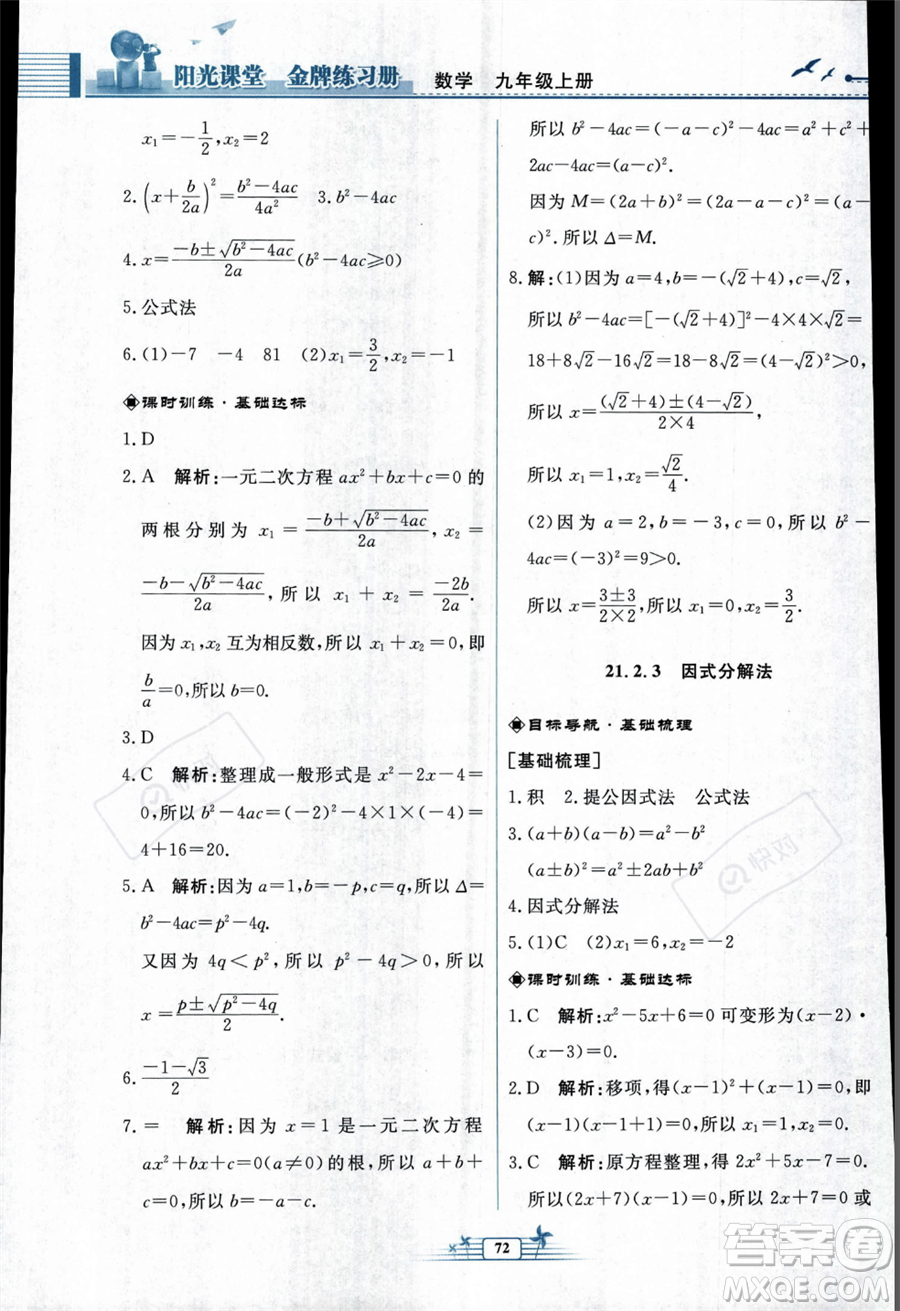 阳光课堂 金牌练习册 数学 九年级上册
x₁=-1/2,x₂=2
2.(x+b/2a)²=(b²-4ac)/4a² 3.b²-4ac
4.x=(-b±√(b²-4ac))/2a(b²-4ac≥0)
5.公式法
6.(1)-7 -4 81 (2)x₁=3/2,x₂=-1
课时训练·基础达标
1.D
2.A 解析:一元二次方程 ax²+bx+c=0 的
两根分别为 x₁=(-b+√(b²-4ac))/2a,x₂=
(-b-√(b²-4ac))/2a,所以 x₁+x₂=-2b/2a.
因为 x₁,x₂ 互为相反数,所以 x₁+x₂=0,即
b/a=0,所以 b=0.
3.D
4.C 解析:整理成一般形式是 x²-2x-4=
0,所以 b²-4ac=(-2)²-4×1×(-4)=
4+16=20.
5.A 解析:因为 a=1,b=-p,c=q,所以 Δ=
b²-4ac=p²-4q.
又因为 4q<p²,所以 p²-4q>0,所以
x=(p±√(p²-4q))/2.
6.(-1-√3)/2
7.= 解析:因为 x=1 是一元二次方程
ax²+bx+c=0(a≠0)的根,所以 a+b+
c=0.所以 b=-a-c.
所以 b²-4ac=(-a-c)²-4ac=a²+c²+
2ac-4ac=(a-c)².
因为 M=(2a+b)²=(2a-a-c)²=(a-
c)².所以 Δ=M.
8.解:(1)因为 a=4,b=-(√2+4),c=√2,
所以 b²-4ac=[-(√2+4)]²-4×4×√2=
18+8√2-16√2=18-8√2=(√2-4)²>0,
所以 x=((√2+4)±(4-√2))/(2×4),
所以 x₁=1,x₂=√2/4.
(2)因为 a=2,b=-3,c=0,所以 b²-
4ac=(-3)²=9>0.
所以 x=(3±3)/(2×2),所以 x₁=0,x₂=3/2.
21.2.3 因式分解法
目标导航·基础梳理
[基础梳理]
1.积 2.提公因式法 公式法
3.(a+b)(a-b)=a²-b²
(a±b)²=a²±2ab+b²
4.因式分解法
5.(1)C (2)x₁=6,x₂=-2
课时训练·基础达标
1.C 解析:x²-5x+6=0 可变形为(x-2)·
(x-3)=0.
2.D 解析:移项,得(x-1)²+(x-1)=0,即
(x-1)(x-1+1)=0,所以 x₁=1,x₂=0.
3.C 解析:原方程整理,得 2x²+5x-7=0.
所以(2x+7)(x-1)=0.所以 2x+7=0 或
72
快对
答案圈
MXQE.COM